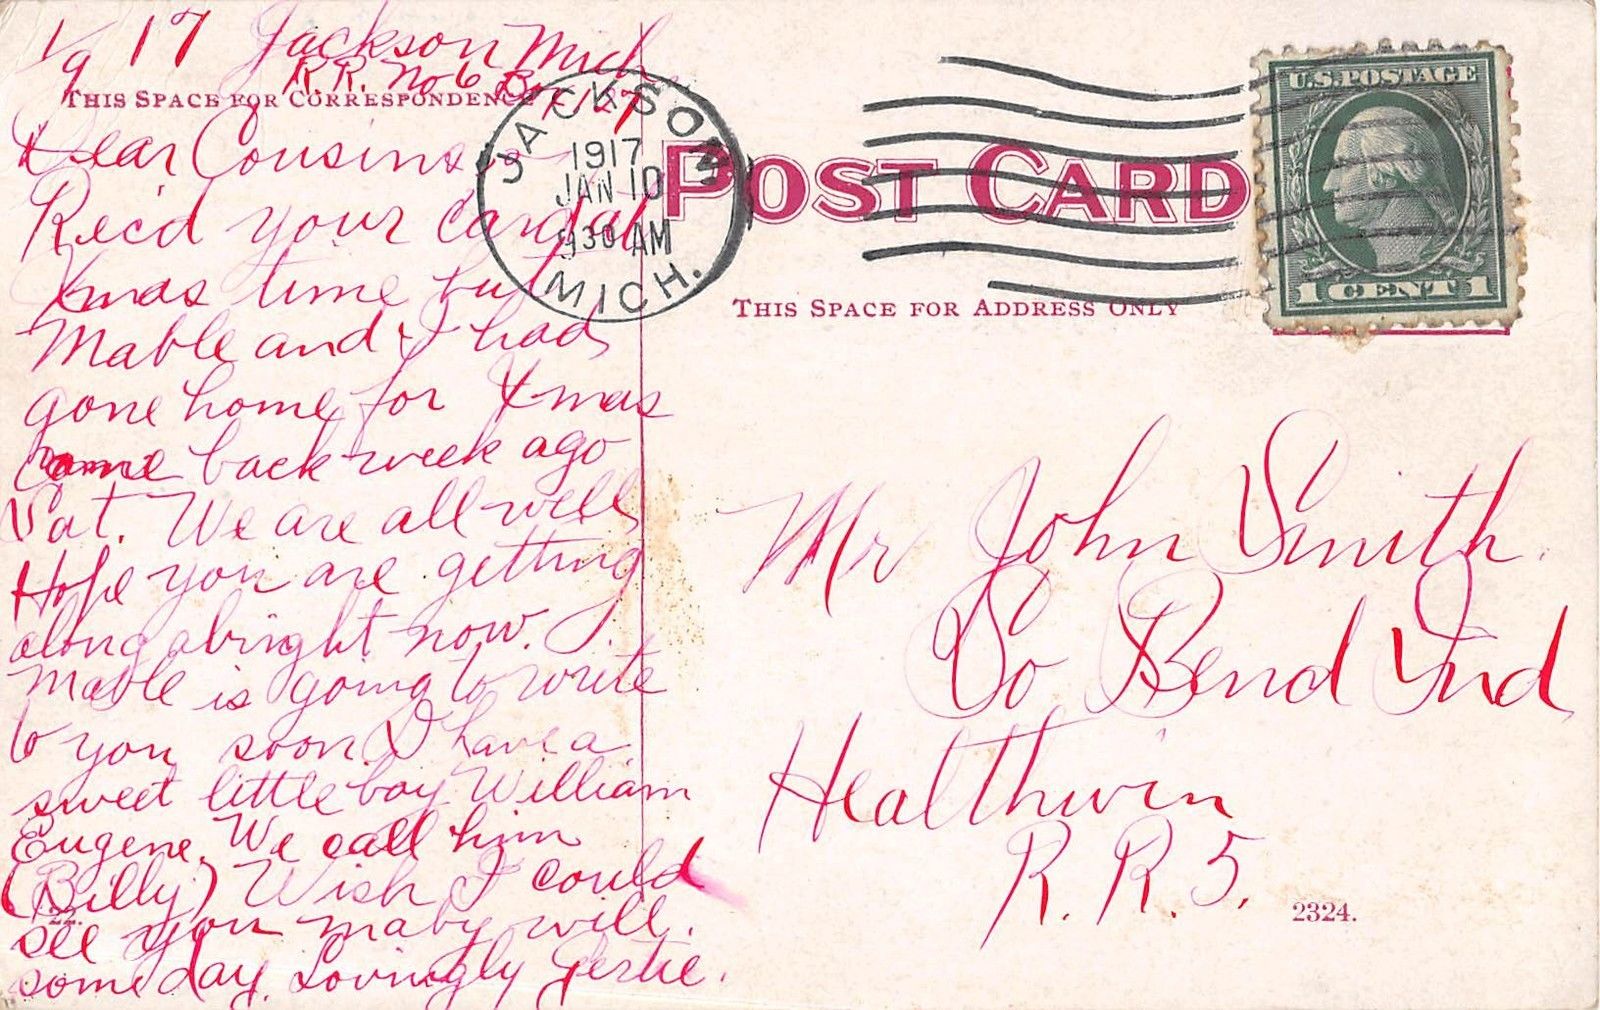 1/9 17 Jackson Mich.
R.R. No 6 Box 127
THIS SPACE FOR CORRESPONDENCE
Dear Cousins
Rec'd your card at
Xmas time but
Mable and I had
gone home for Xmas
Came back week ago
Sat. We are all well
Hope you are getting
along alright now.
Mable is going to write
to you soon. I have a
sweet little boy William
Eugene. We call him
(Billy) Wish I could
see you maby will.
some day. Lovingly Gertie.
22.
JACKSON
1917
JAN 10
930 AM
MICH.
POST CARD
THIS SPACE FOR ADDRESS ONLY
U.S. POSTAGE
1 CENT 1
Mr John Smith.
So Bend Ind
Healthwin
R. R. 5.
2324.